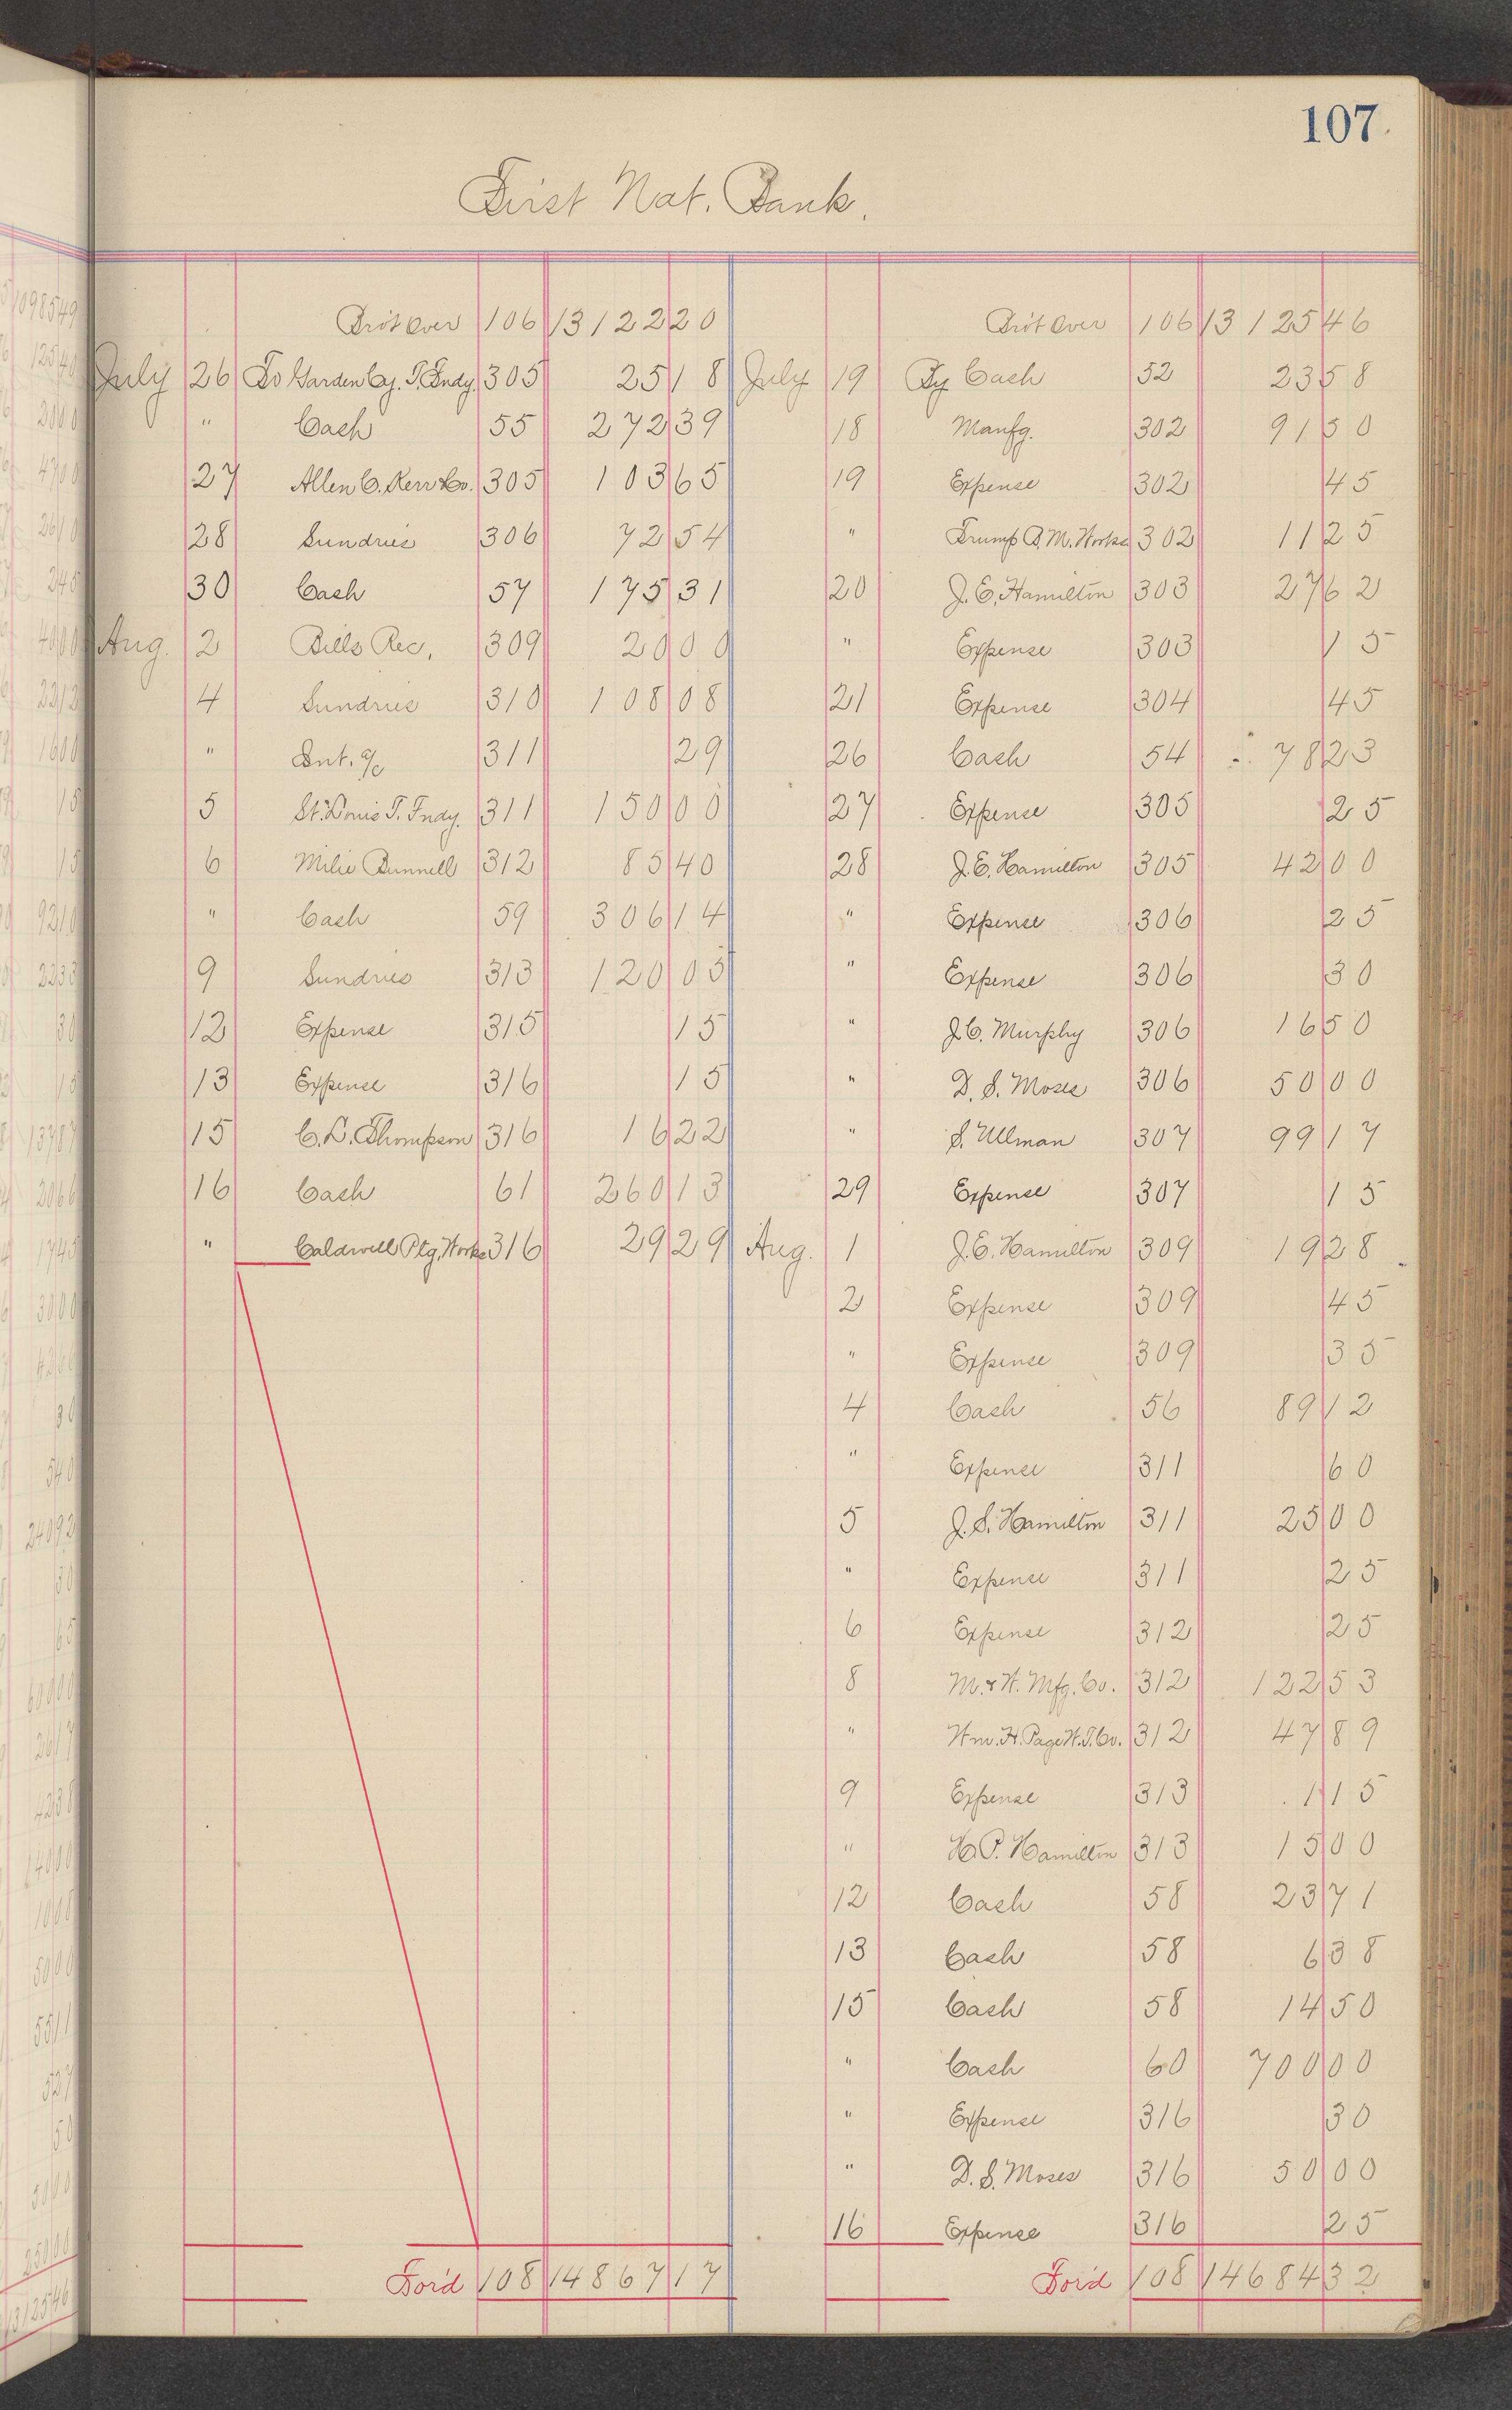 107
First Nat. Bank.
Bro't Over 106 13122 20
July 26 To Garden Cy. T. Fndy. 305 25 18
" Cash 55 272 39
27 Allen C. Kerr & Co. 305 103 65
28 Sundries 306 72 54
30 Cash 57 175 31
Aug. 2 Bills Rec, 309 20 00
4 Sundries 310 108 08
" Int. a/c 311 29
5 St. Louis T. Fndy. 311 150 00
6 Milie Bunnell 312 85 40
" Cash 59 306 14
9 Sundries 313 120 05
12 Expense 315 15
13 Expense 316 15
15 C. L. Thompson 316 16 22
16 Cash 61 260 13
" Caldwell Ptg. Works 316 29 29
For'd 108 14867 17
Bro't Over 106 13125 46
July 19 By Cash 52 23 58
18 Manfg. 302 91 50
19 Expense 302 45
" Trump B. M. Works 302 11 25
20 J. E. Hamilton 303 27 62
" Expense 303 15
21 Expense 304 45
26 Cash 54 78 23
27 Expense 305 25
28 J. E. Hamilton 305 42 00
" Expense 306 25
" Expense 306 30
" J. C. Murphy 306 16 50
" D. S. Moses 306 50 00
" S. Ullman 307 99 17
29 Expense 307 15
Aug. 1 J. E. Hamilton 309 19 28
2 Expense 309 45
" Expense 309 35
4 Cash 56 89 12
" Expense 311 60
5 J. S. Hamilton 311 25 00
" Expense 311 25
6 Expense 312 25
8 M. & W. Mfg. Co. 312 122 53
" Wm. H. Page W. T. Co. 312 47 89
9 Expense 313 1 15
" H. P. Hamilton 313 15 00
12 Cash 58 23 71
13 Cash 58 6 38
15 Cash 58 14 50
" Cash 60 700 00
" Expense 316 30
" D. S. Moses 316 50 00
16 Expense 316 25
For'd 108 14684 32